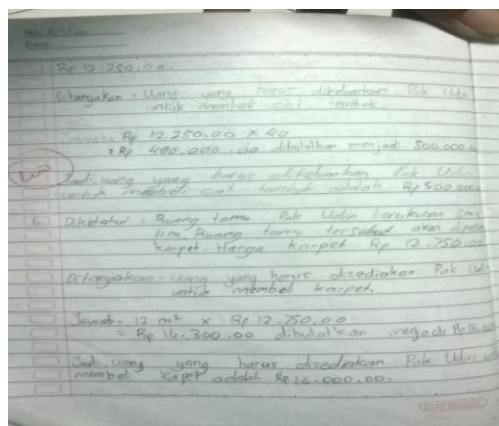 No.
Date
Rp 12.250.00.
Ditanyakan = Uang yang harus dikeluarkan Pak Udin
untuk membeli cat tembok.
Jawab: Rp 12.250.00 x 40
= Rp 490.000.00 dibulatkan menjadi 500.000.
Jadi uang yang harus dikeluarkan Pak Udin
untuk membeli cat tembok adalah Rp 500.000
6 Diketahui = Ruang tamu Pak Udin berukuran 3m
4m. Ruang tamu tersebut akan
karpet. Harga karpet Rp 12.750.00
Ditanyakan = Uang yang harus disediakan Pak Udin
untuk membeli karpet.
Jawab = 12 m² x Rp 12.750.00
= Rp 16.300.00 dibulatkan menjadi Rp 16.00
Jadi uang yang harus disediakan Pak Udin
membeli kapet adalah Rp 16.000.00.